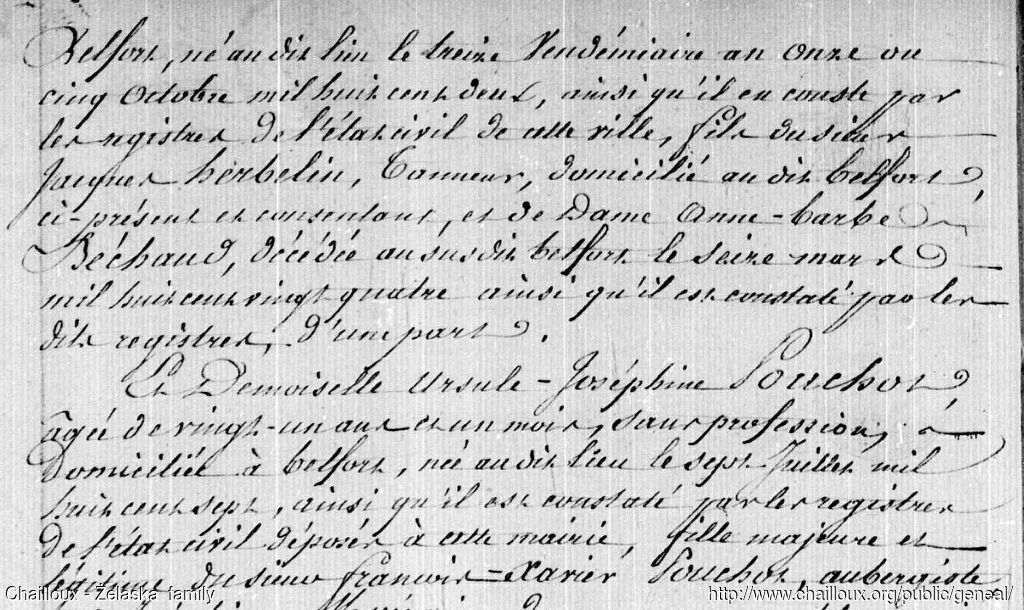 Belfort, né au dit lieu le treize Vendémiaire an onze ou
cinq Octobre mil huit cent deux, ainsi qu'il en conste par
les registres de l'état civil de cette ville, fils du sieur
Jacques herbelin, Tanneur, domicilié au dit belfort,
ci-présent et consentant, et de Dame Anne-barbe
Béchaud, décédée au susdit belfort le seize mars
mil huit cent vingt quatre ainsi qu'il est constaté par les
dits registres, d'une part.
Et Demoiselle Ursule-Joséphine Pouchot,
âgée de vingt-un ans et un mois, sans profession,
domiciliée à belfort, née au dit lieu le sept Juillet mil
huit cent sept, ainsi qu'il est constaté par les registres
de l'état civil déposés à cette mairie, fille majeure et
légitime du sieur François-Xavier Pouchot, aubergiste
Chailloux - Zelaska family
http://www.chailloux.org/public/geneal/